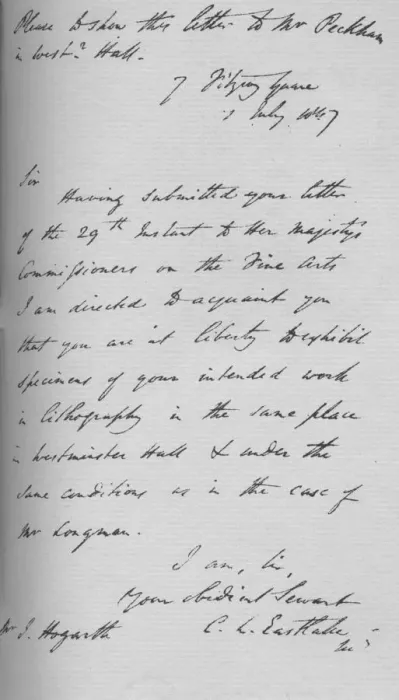 Please to show this letter to Mr Peckham
in Westr. Hall.
7 Fitzroy Square
1 July 1847
Sir
Having submitted your letter
of the 29th Instant to Her Majesty's
Commissioners on the Fine Arts
I am directed to acquaint you
that you are at liberty to exhibit
specimens of your intended work
in lithography in the same place
in Westminster Hall & under the
same conditions as in the case of
Mr Longman.
I am, Sir,
Your obedient Servant
C. L. Eastlake
Mr J. Hogarth